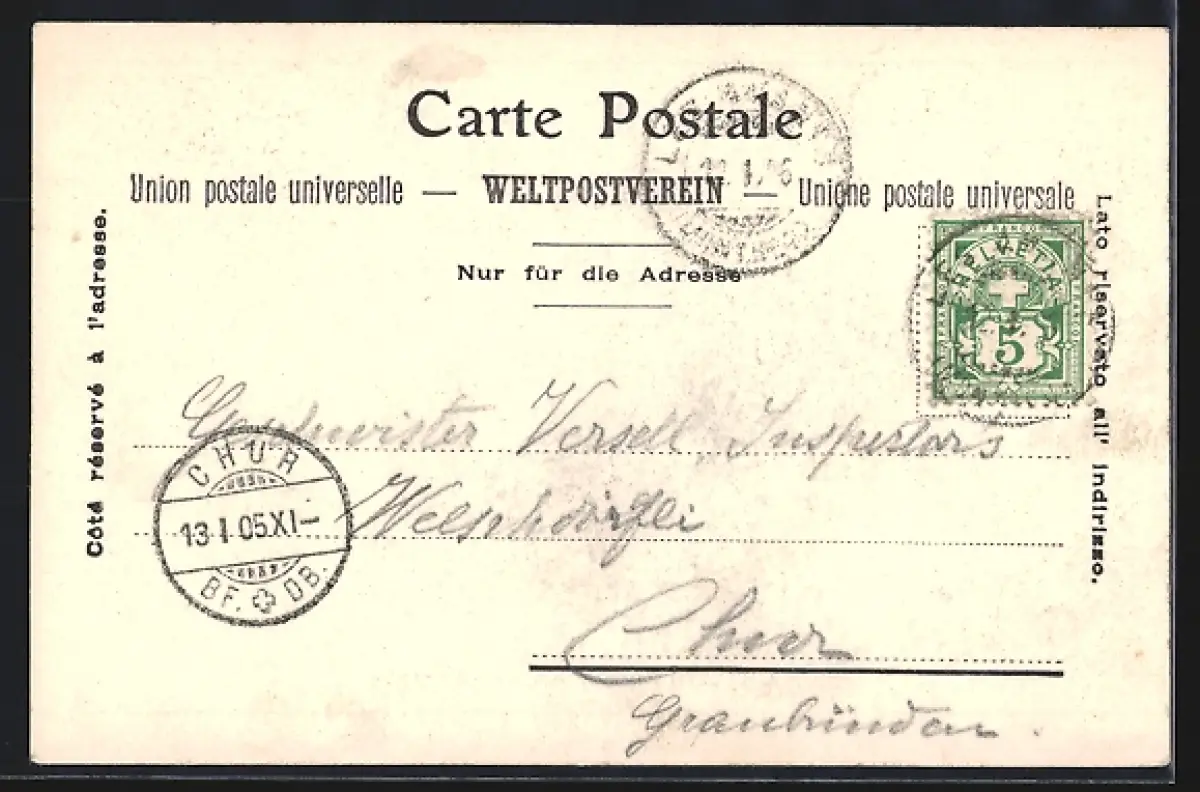 Carte Postale
Union postale universelle — WELTPOSTVEREIN — Unione postale universale
Nur für die Adresse
Côté réservé à l'adresse.
Lato riservato all' indirizzo.
HELVETIA
FRANCO
5
Geschwister Versell Inspektors
Welschdörfli
Chur
Graubünden.
CHUR
13.I.05.XI–
BF. DB.